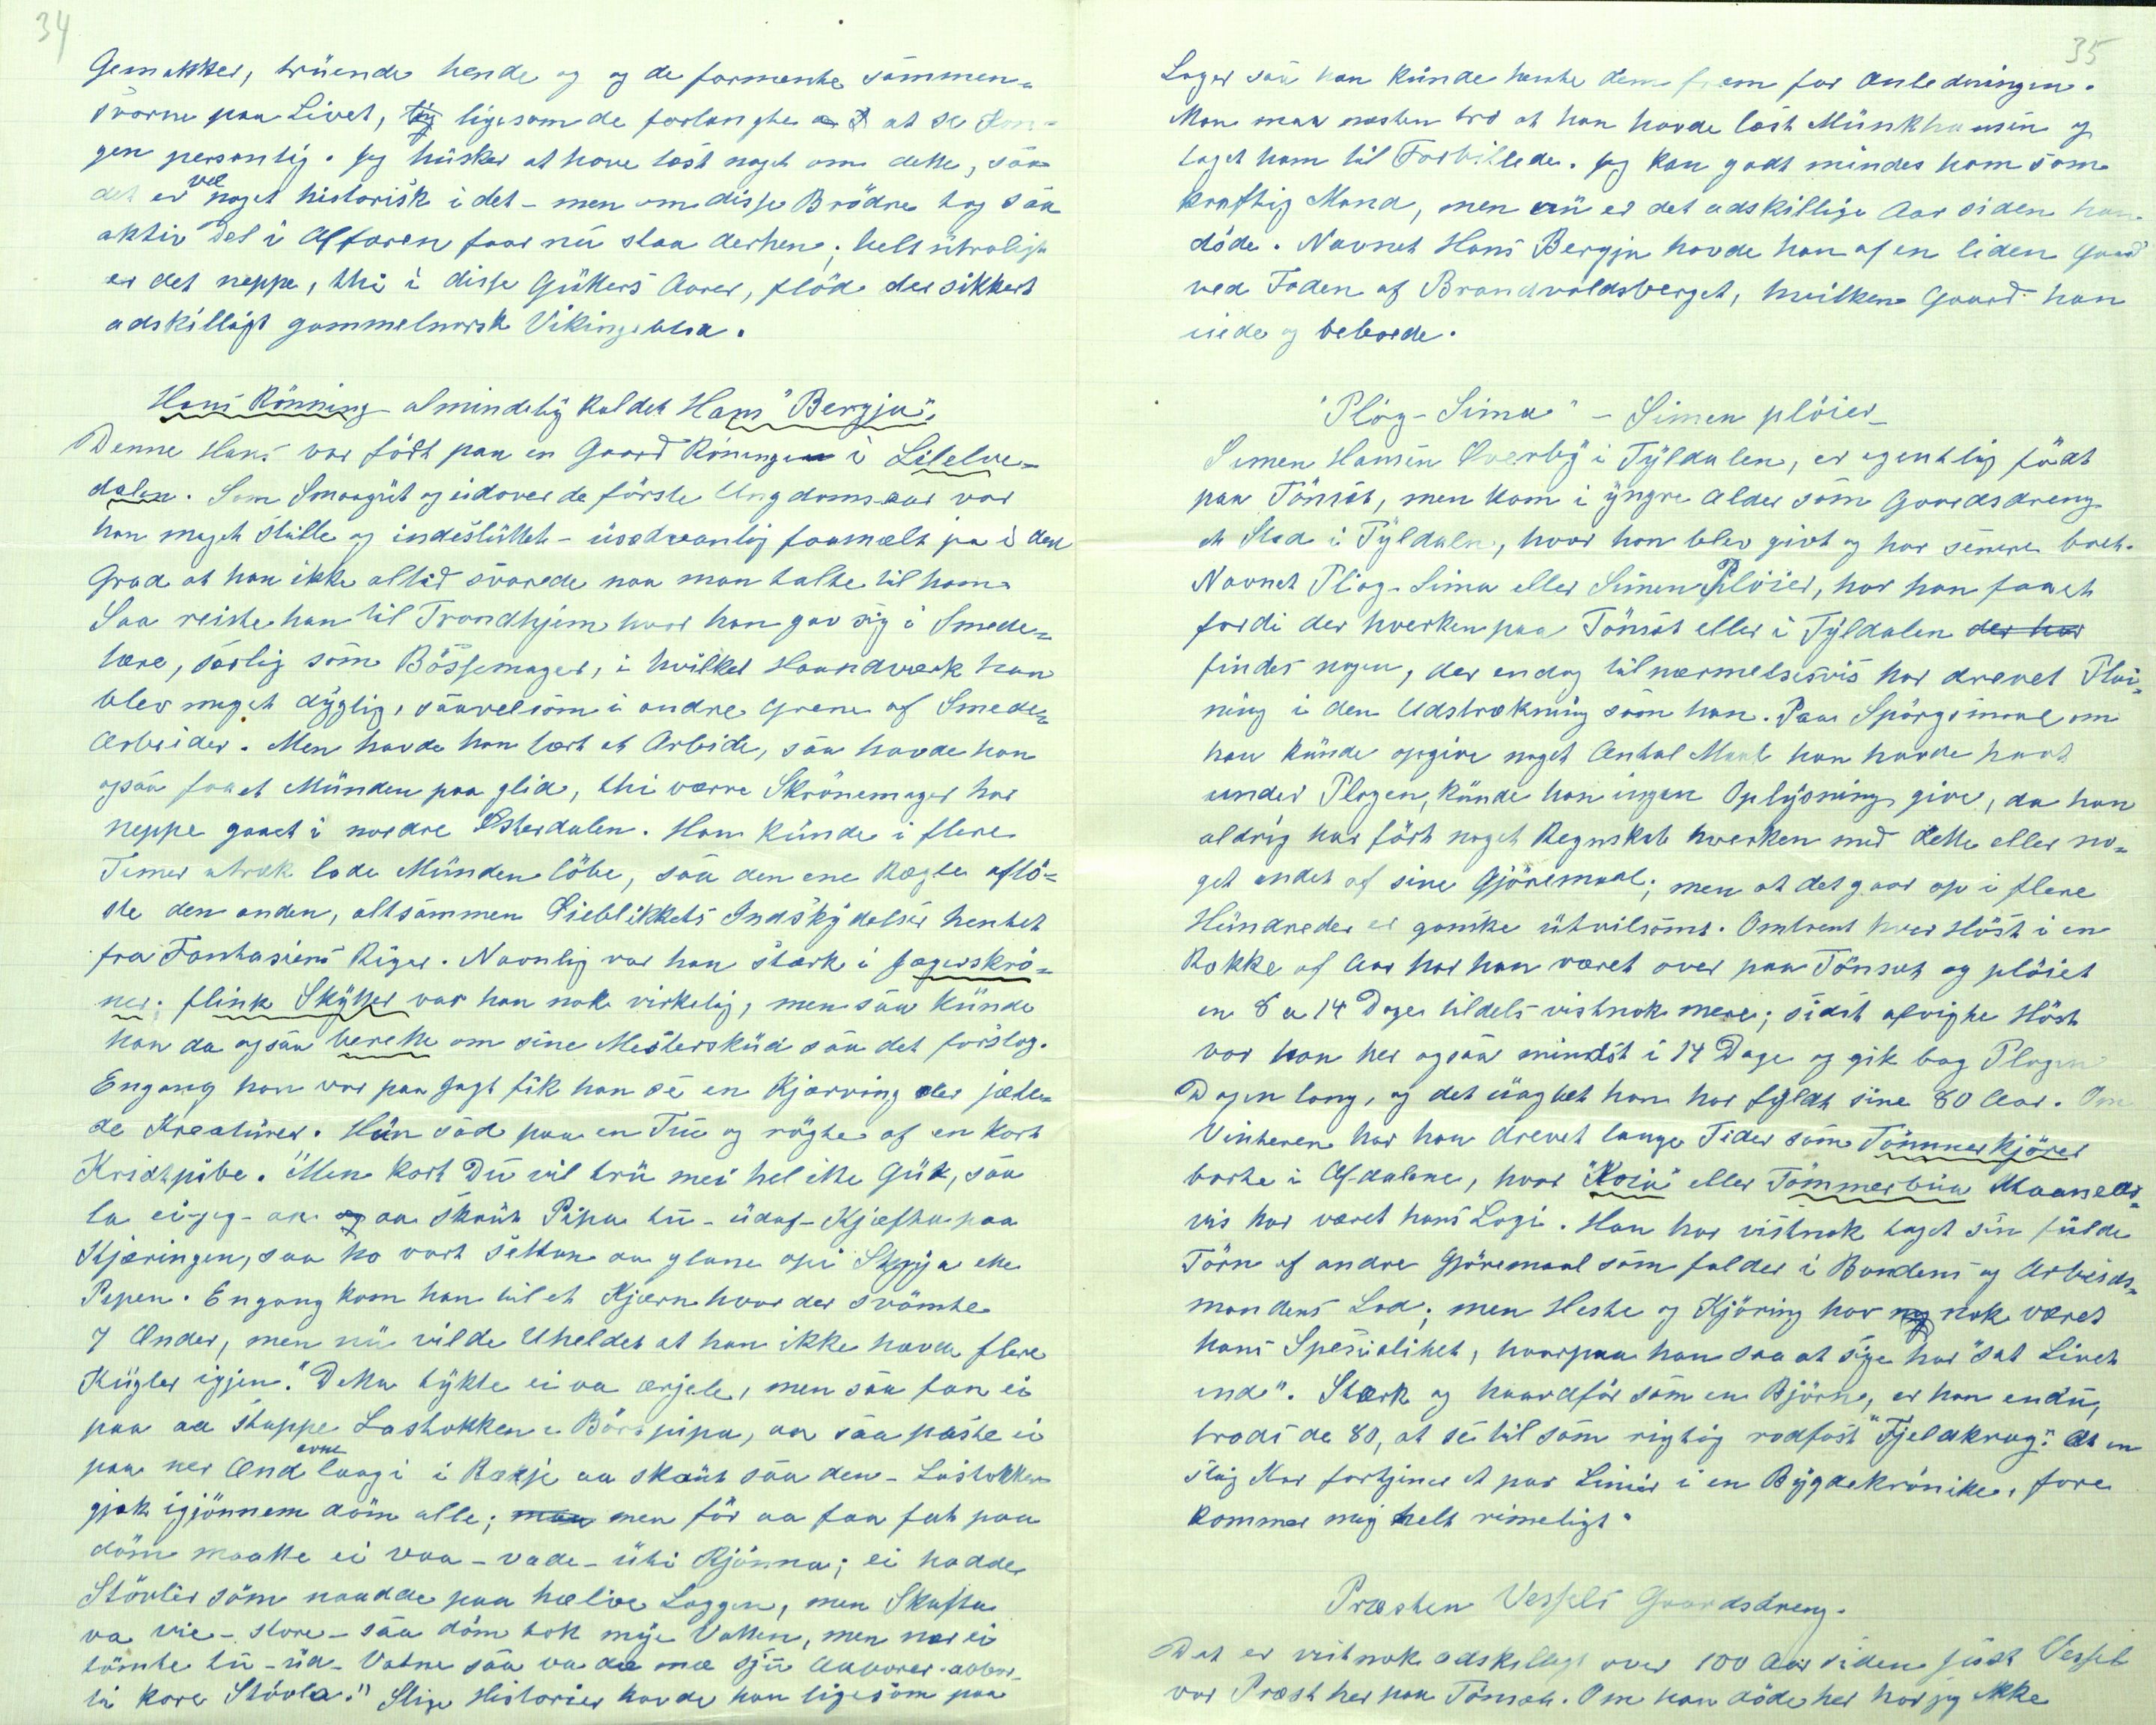 34
Gemakker, truende hende og og de formente sammen-
svorne paa Livet, ligesom de forlangte at se Kon-
gen personlig. Jeg husker at have læst noget om dette, saa
det er vel noget historisk i det - men om disse Brödre tog saa
aktiv Del i Affæren faar nu staa derhen; helt utroligt
er det neppe, thi i disse Gutters Aarer, flöd der sikkert
adskilligt gammelnorsk Vikingeblod.
Hans Rönning almindelig kaldet Hans "Bergja".
Denne Hans var födt paa en Gaard Röningen i Lilelve-
dalen. Som Smaagut og udover de förste Ungdomsaar var
han meget stille og indesluttet - usedvanlig faamælt ja i den
Grad at han ikke altid svarede naa man talte til ham.
Saa reiste han til Trondhjem hvor han gav sig i Smede-
lære, særlig som Bössemager, i hvilket Haandværk han
blev meget dygtig, saavelsom i andre Grene af Smede-
Arbeider. Men havde han lært et Arbeide, saa havde han
ogsaa faaet Munden paa glid, thi værre Skrönemager har
neppe gaaet i nordre Österdalen. Han kunde i flere
Timer atræk lade Munden löbe, saa den ene Regle aflö-
ste den anden, altsammen Öieblikkets Indskydelser hentet
fra Fantasiens Riger. Navnlig var han stærk i Jagerskrö-
ner; flink Skytter var han nok virkelig, men saa kunde
han da ogsaa berette om sine Mesterskud saa det forslog.
Engang han var paa Jagt fik han se en Kjærring der jæte-
de Kreaturer. Hun sad paa en Tue og rögte af en kort
Kridtpibe. "Men kort Du vil tru mei hel itte Gut, saa
la ei-jeg- an aa skaut Pipa tu - udaf - Kjæfta paa
Kjæringen, saa ho vart settan aa glane opi Skyja ette
Pipen. Engang kom han til et Kjærn hvor der svömte
7 Ænder, men nu vilde Uheldet at han ikke havde flere
Kugler igjen. "Detta tykte ei va ærjele, men saa fan ei
paa aa stappe Lastokken i Börspipa, aa saa paste ei
paa ner Ænd'erne laag i i Rækje aa skaut saa den - Lastokken
gjek igjönnem döm alle; men för aa faa fat paa
döm maatte ei vaa - vade - uti Kjönna; ei hadde
Stövler söm naadde paa hælve Laggen, men Skafta
va vie - store - saa döm tok mye Vatten, men nar ei
tömte tu - ud - Vatne saa va de mæ sju Aaborer - abbor -
ti kore Stövla." Slige Historier havde han ligesom paa
35
Lager saa han kunde hente dem frem for Anledningen.
Man maa næsten tro at han havde læst Münkhausen og
taget ham til Forbillede. Jeg kan godt mindes ham som
kraftig Mand, men nu er det adskillige Aar siden han
döde. Navnet Hans Bergja havde han af en liden Gaard
ved Foden af Brandvoldsberget, hvilken Gaard han
eiede og beboede.
"Plög-Sima" - Simen plöier -
Simen Hansen Överby i Tyldalen, er egentlig födt
paa Tönset, men kom i yngre Alder som Gaardsdreng
et Sted i Tyldalen, hvor han blev givt og har senere boet.
Navnet Plög-Sima eller Simen Plöier, har han faaet
fordi der hverken paa Tönset eller i Tyldalen der har
findes nogen, der endog tilnærmelsesvis har drevet Plöi-
ning i den Udstrækning som han. Paa Spörgsmaal om
han kunde opgive noget Antal Maal han havde havt
under Plogen, kunde han ingen Oplysning give, da han
aldrig har fört noget Regnskab hverken med dette eller no-
get andet af sine Gjöremaal; men at det gaar op i flere
Hundreder er ganske utvilsomt. Omtrent hver Höst i en
Række af Aar har han været over paa Tönset og plöiet
en 8 a 14 Dage tildels vistnok mere; sidst afvigte Höst
var han her ogsaa mindst i 14 Dage og gik bag Plogen
Dagen lang, og det uagtet han har fyldt sine 80 Aar. Om
Vinteren har han drevet lange Tider som Tömmerkjörer
borte i Afdalene, hvor "Koia" eller Tömmerbua Maaneds-
vis har været hans Logi. Han har vistnok taget sin fulde
Törn af andre Gjöremaal som falder i Bondens og Arbeids-
mandens Lod; men Heste og Kjöring har nok været
hans Spesialitet, hvorpaa han saa at sige har "sat Livet
ind". Stærk og haardför som en Björn, er han endnu,
trods de 80, at se til som rigtig rodfast "Fjeldkrag". At en
slig Kar fortjener et par Linier i en Bygdekrönike, fore
kommer mig helt rimeligt.
Præsten Vessels Gaardsdreng.
Det er vistnok adskilligt over 100 Aar siden sidst Vessel
var Præst her paa Tönset. Om han döde her har jeg ikke